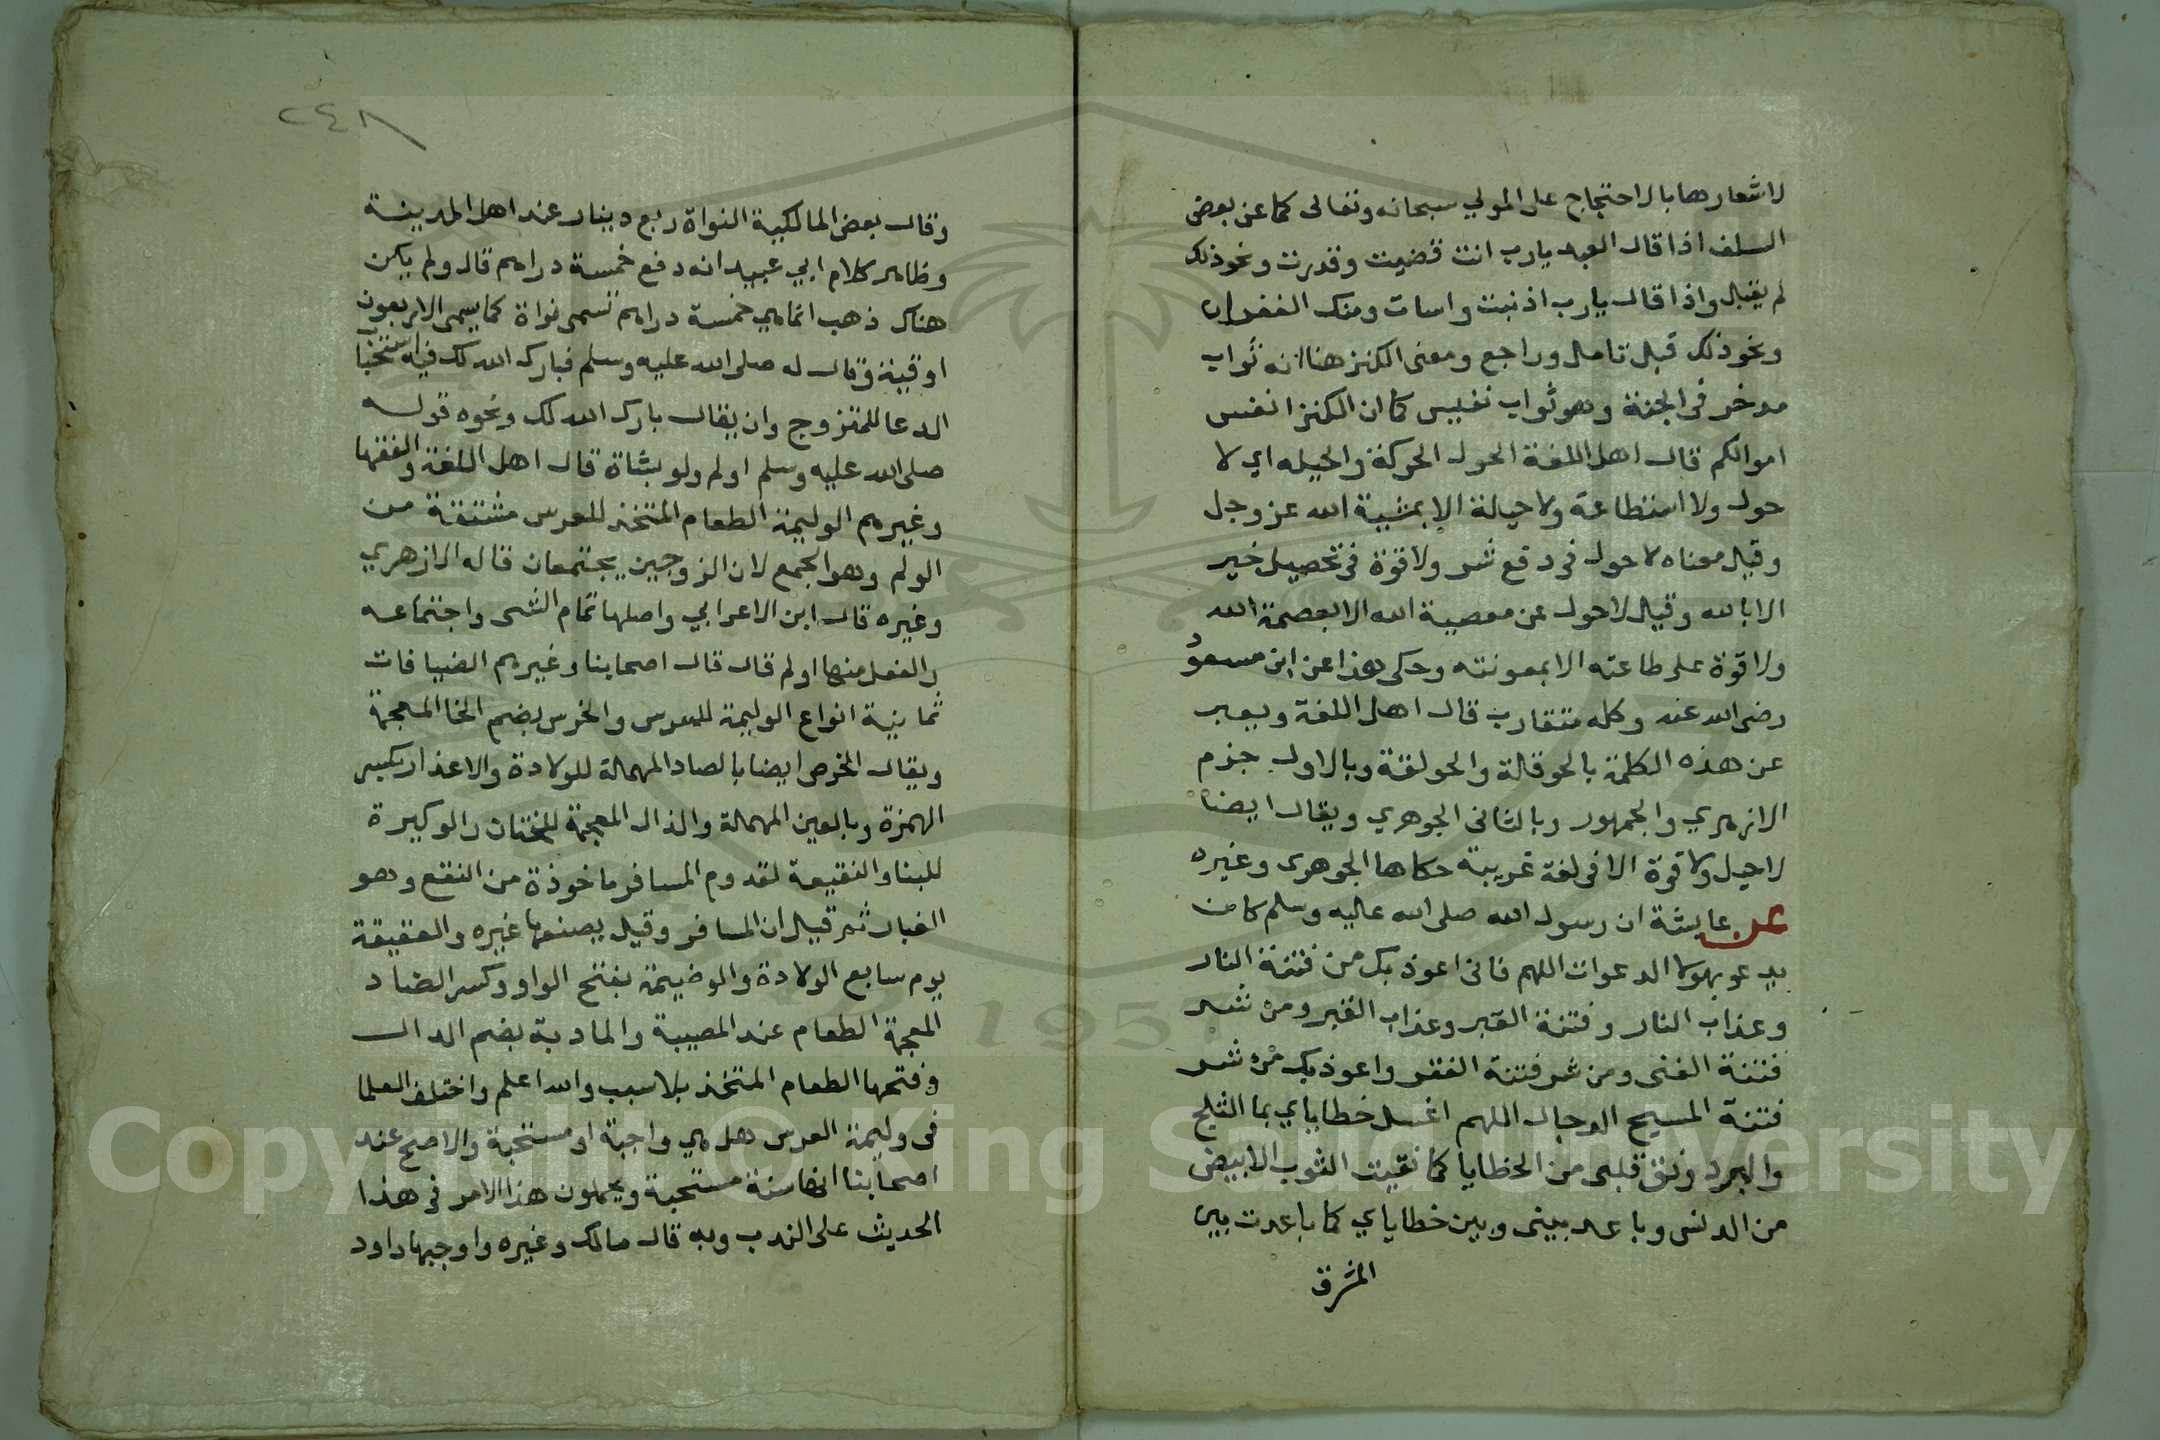 لاشعارها بالاحتجاج على المولي سبحانه وتعالى كما عن بعض
السلف اذا قال العبد يارب انت قضيت وقدرت ونحو ذلك
لم يقبل واذا قال يارب اذنبت واسات ومنك الغفران
ونحو ذلك قبل تامل وراجع ومعنى الكنز هنا انه ثواب
مدخر في الجنة وهو ثواب نفيس كما ان الكنز انفس
اموالكم قال اهل اللغة الحول الحركة والحيله اي لا
حول ولا استطاعة ولا حيلة الا بمشيئة الله عز وجل
وقيل معناه لا حول في دفع شر ولا قوة في تحصيل خير
الا بالله وقيل لا حول عن معصية الله الا بعصمة الله
ولا قوة على طاعته الا بمعونته وحكى هذا عن ابن مسعود
رضى الله عنه وكله متقارب قال اهل اللغة ويعبر
عن هذه الكلمة بالحوقلة والحولقة وبالاول جزم
الازهري والجمهور وبالثانى الجوهري ويقال ايضا
لا حيل ولا قوة الا في لغة غريبة حكاها الجوهرى وغيره
عن عايشة ان رسول الله صلى الله عليه وسلم كان
يدعو بهولا الدعوات اللهم فانى اعوذ بك من فتنة النار
وعذاب النار وفتنة القبر وعذاب القبر ومن شر
فتنة الغنى ومن شر فتنة الفقر واعوذ بك من شر
فتنة المسيح الدجال اللهم اغسل خطاياي بما الثلج
والبرد ونق قلبى من الخطايا كما نقيت الثوب الابيض
من الدنس وباعد بينى وبين خطاياي كما باعدت بين
المشرق
٢٤٨
وقال بعض المالكية النواة ربع دينار عند اهل المدينة
وظاهر كلام ابي عبيد انه دفع خمسة دراهم قال ولم يكن
هناك ذهب انما هي خمسة دراهم تسمى نواة كما يسمى الاربعون
اوقية وقال له صلى الله عليه وسلم فبارك الله لك فيه استحبا
الدعا للمتزوج وان يقال بارك الله لك ونحوه قوله
صلى الله عليه وسلم اولم ولو بشاة قال اهل اللغة والفقها
وغيرهم الوليمة الطعام المتخذ للعرس مشتقة من
الولم وهو الجمع لان الزوجين يجتمعان قاله الازهري
وغيره قال ابن الاعرابي واصلها تمام الشى واجتماعه
والفعل منها اولم قال قال اصحابنا وغيرهم الضيافات
ثمانية انواع الوليمة للعرس والخرس بضم الخا المعجمة
ويقال الخرص ايضا بالصاد المهملة للولادة والاعذار بكسر
الهمزة وبالعين المهملة والذال المعجمة للختان والوكيرة
للبنا والنقيعة لقدوم المسافر ماخوذة من النقع وهو
الغبار ثم قيل ان المسافر وقيل يصنعها غيره والعقيقة
يوم سابع الولادة والوضيمة بفتح الواو وكسر الضاد
المعجمة الطعام عند المصيبة والمادبة بضم الدال
وفتحها الطعام المتخذ بلا سبب والله اعلم واختلف العلما
في وليمة العرس هل هي واجبة او مستحبة والاصح عند
اصحابنا انها سنة مستحبة ويحملون هذا الامر في هذا
الحديث على الندب وبه قال مالك وغيره واوجبها داود
Copyright © King Saud University
195